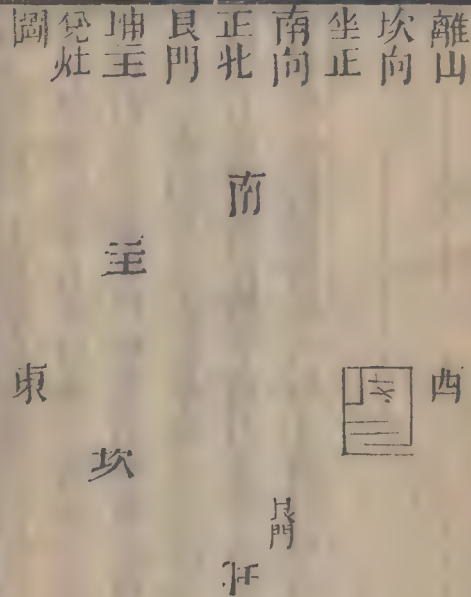 離山
坎向
坐正
南向
正北
艮門
坤主
兌灶
圖
南
主
西
灶
東
坎
艮門
北